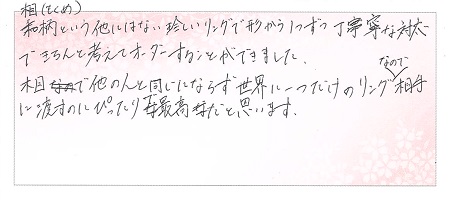 相(もくめ)
和柄という他にはない珍しいリングで形から1つずつ丁寧な対応
できちんと考えてオーダーすることができました。
木目で他の人と同じにならず世界に一つだけのリングなので相手
に渡すのにぴったりで最高だと思います。